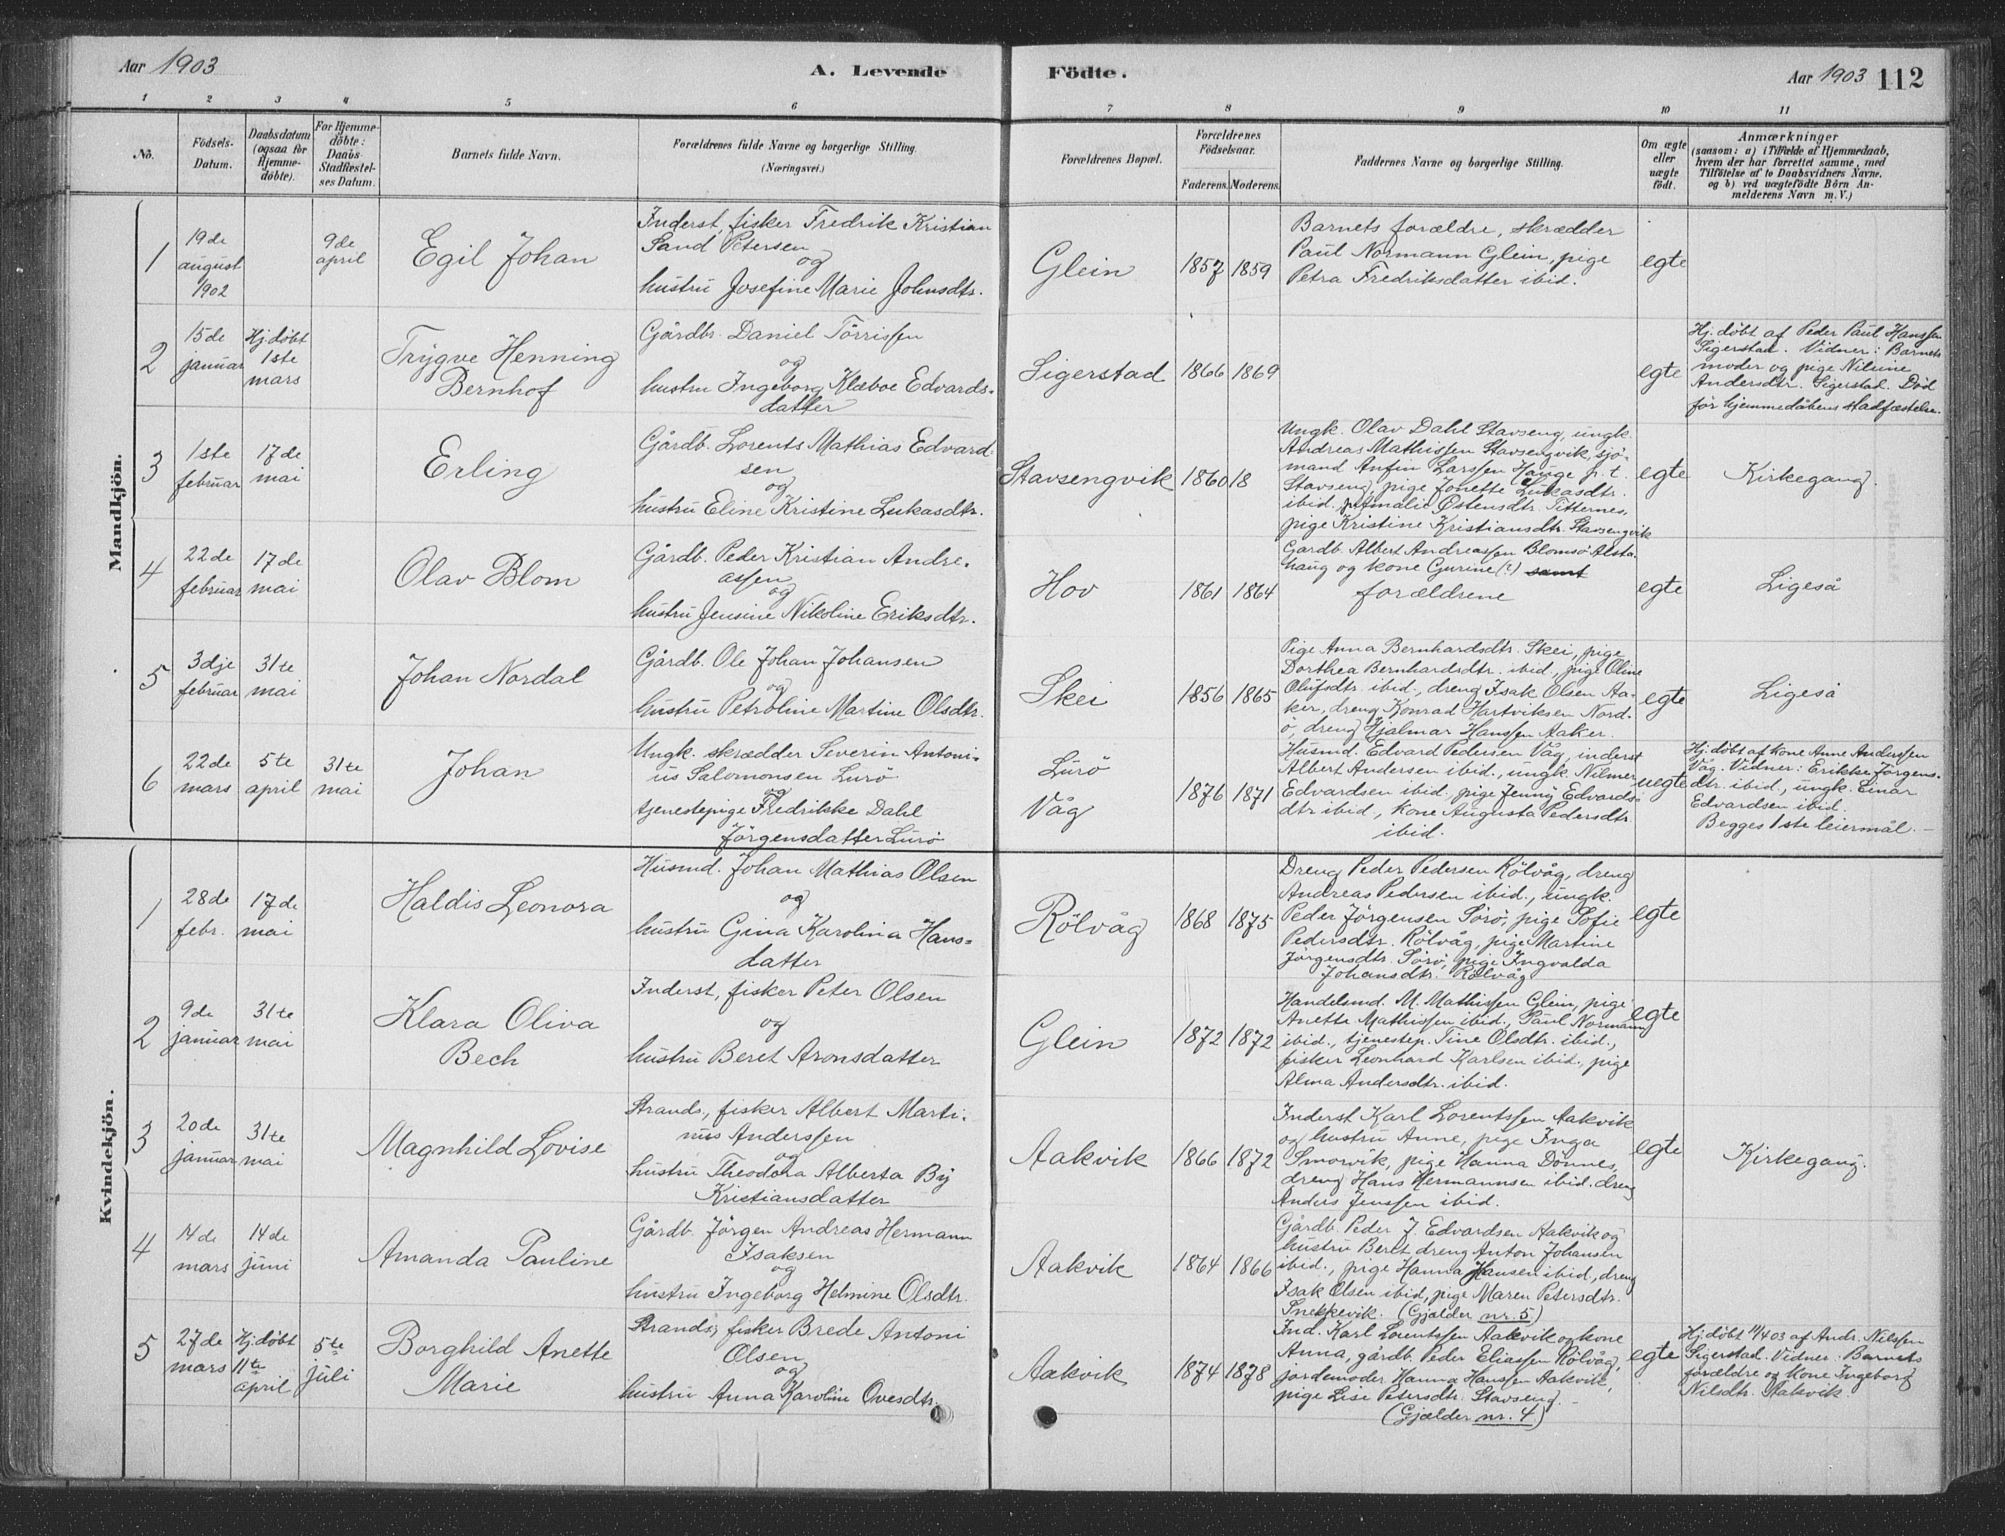 Aar 1903
A. Levende Födte.
Aar 1903 112
1 2 3 4 5 6 7 8 9 10 11
No.
Födsels-
Datum.
Daabsdatum
(ogsaa for
Hjemme-
döbte).
For Hjemme-
döbte:
Daabs-
Stadfæstel-
ses Datum.
Barnets fulde Navn.
Forældrenes fulde Navne og borgerlige Stilling.
(Næringsvei.)
Forældrenes Bopæl.
Forældrenes
Födselsaar.
Faderens. Moderens.
Faddernes Navne og borgerlige Stilling.
Om ægte
eller
uægte
födt.
Anmærkninger
(saasom: a) i Tilfælde af Hjemmedaab,
hvem der har forrettet samme, med
Tilföielse af to Daabsvidners Navne.
og b) ved uægtefödte Börn An-
melderens Navn m.V.)
Mandkjön.
1
19de
august
1902
9de
april
Egil Johan
Inderst, fisker Fredrik Kristian
Sand Petersen
og
hustru Josefine Marie Johnsdtr.
Glein
1857 1859
Barnets forældre, skrædder
Paul Normann Glein, pige
Petra Fredriksdatter ibid.
egte
2
15de
januar
Hj.døbt
1ste
mars
Trygve Henning
Bernhof
Gårdbr. Daniel Tørrissen
og
hustru Ingeborg Klæboe Edvards-
datter
Sigerstad
1866 1869
egte
Hj. døbt af Peder Paul Hanssen
Sigerstad. Vidner: Barnets
moder og pige Niluine
Andersdtr. Sigerstad. Død
før hjemmedåbens stadfæstelse.
3
1ste
februar
17de
mai
Erling
Gårdb. Lorents Mathias Edvard-
sen
og
hustru Eline Kristine Lukasdtr.
Stavsengvik
1860 18
Ungk. Olav Dahl Stavseng, ungk.
Andreas Mathissen Stavsengvik, sjö-
mand Anfin Larssen Hauge p.t.
Stavseng, pige Jonette Lukasdtr.
ibid. p. Amalie Østensdtr. Titternes,
pige Kristine Kristiansdtr. Stavsengvik
egte
Kirkegang.
4
22de
februar
17de
mai
Olav Blom
Gårdb. Peder Kristian Andre-
assen
og
hustru Jensine Nikoline Eriksdtr.
Hov
1861 1864
Gardb. Albert Andreassen Blomsö Alsta-
haug og kone Gurine (?) samt
forældrene
egte
Ligeså
5
3dje
februar
31te
mai
Johan Nordal
Gårdb. Ole Johan Johansen
og
hustru Petroline Martine Olsdtr.
Skei
1856 1865
Pige Anna Bernhardsdtr. Skei, pige
Dorthea Bernhardsdtr. ibid., pige Oline
Olufsdtr. ibid., dreng Isak Olsen Aa-
ker, dreng Konrad Hartviksen Nord-
ö, dreng Hjalmar Hanssen Aaker.
egte
Ligeså
6
22de
mars
5te
april
31te
mai
Johan
Ungk. skrædder Severin Antoni-
us Salomonsen Lurö
og
tjenestepige Fredrikke Dahl
Jörgensdatter Lurö
Lurö
Våg
1876 1871
Husmd. Edvard Pedersen Våg, inderst
Albert Andersen ibid., ungk. Nilmer
Edvardsen ibid., pige Jenny Edvards-
dtr ibid., kone Augusta Pedersdtr.
ibid.
uegte
Hj. døbt af kone Anne Anderssen
Våg. Vidner: Erikke Jørgens-
dtr. ibid., ungk. Einar
Edvardsen ibid.
Begges 1ste leiermål.
Kvindekjön.
1
28de
febr.
17de
mai
Haldis Leonora
Husmd. Johan Mathias Olsen
og
hustru Gina Karolina Hans-
datter
Rölvåg
1868 1875
Dreng Peder Pedersen Rölvåg, dreng
Andreas Pedersen ibid., ungk.
Peder Jörgensen Sörö, pige Sofie
Pedersdtr. Rölvåg, pige Martine
Jörgensdtr. Sörö, pige Ingvalda
Johansdtr. Rölvåg
egte
2
9de
januar
31te
mai
Klara Oliva
Bech
Inderst, fisker Peter Olsen
og
hustru Beret Aronsdatter
Glein
1872 1872
Handelsmd. M. Mathissen Glein, pige
Anette Mathissen ibid., Paul Normann
ibid., tjenestep. Tine Olsdtr. ibid.,
fisker Leonhard Karlsen ibid., pige
Alma Andersdtr. ibid.
egte
3
20de
januar
31te
mai
Magnhild Lovise
Strands., fisker Albert Marti-
nus Anderssen
og
hustru Theodora Alberta By
Kristiansdatter
Aakvik
1866 1872
Inderst Karl Lorentssen Aakvik
og hustru Anne, pige Inga
Smorvik, pige Hanna Dönnes,
dreng Hans Hermannsen ibid. dreng
Anders Jenssen ibid.
egte
Kirkegang.
4
14de
mars
14de
juni
Amanda Pauline
Gårdb. Jörgen Andreas Hermann
Isaksen
og
hustru Ingeborg Helmine Olsdtr.
Aakvik
1864 1866
Gårdb. Peder J. Edvardsen Aakvik og
hustru Beret, dreng Anton Johansen
ibid., pige Hanna Hansen ibid., dreng
Isak Olsen ibid, pige Maren Petersdtr.
Snekkevik. (Gjælder nr. 5)
5
27de
mars
Hj.døbt
11te
april
5te
juli
Borghild Anette
Marie
Strands; fisker Brede Antoni
Olsen
og
hustru Anna Karoline Ovesdtr.
Aakvik
1874 1878
Ind. Karl Lorentssen Aakvik og kone
Anna, gårdb. Peder Eliassen Rölvåg,
jordemoder Hanna Hanssen Aakvik,
pige Lise Petersdtr. Stavseng.
(Gjælder nr. 4)
egte
Hj. døbt 11/4 03 af Ands. Nilssen
Sigerstad. Vidner: Barnets
forældre og kone Ingeborg
Nilsdtr. Aakvik